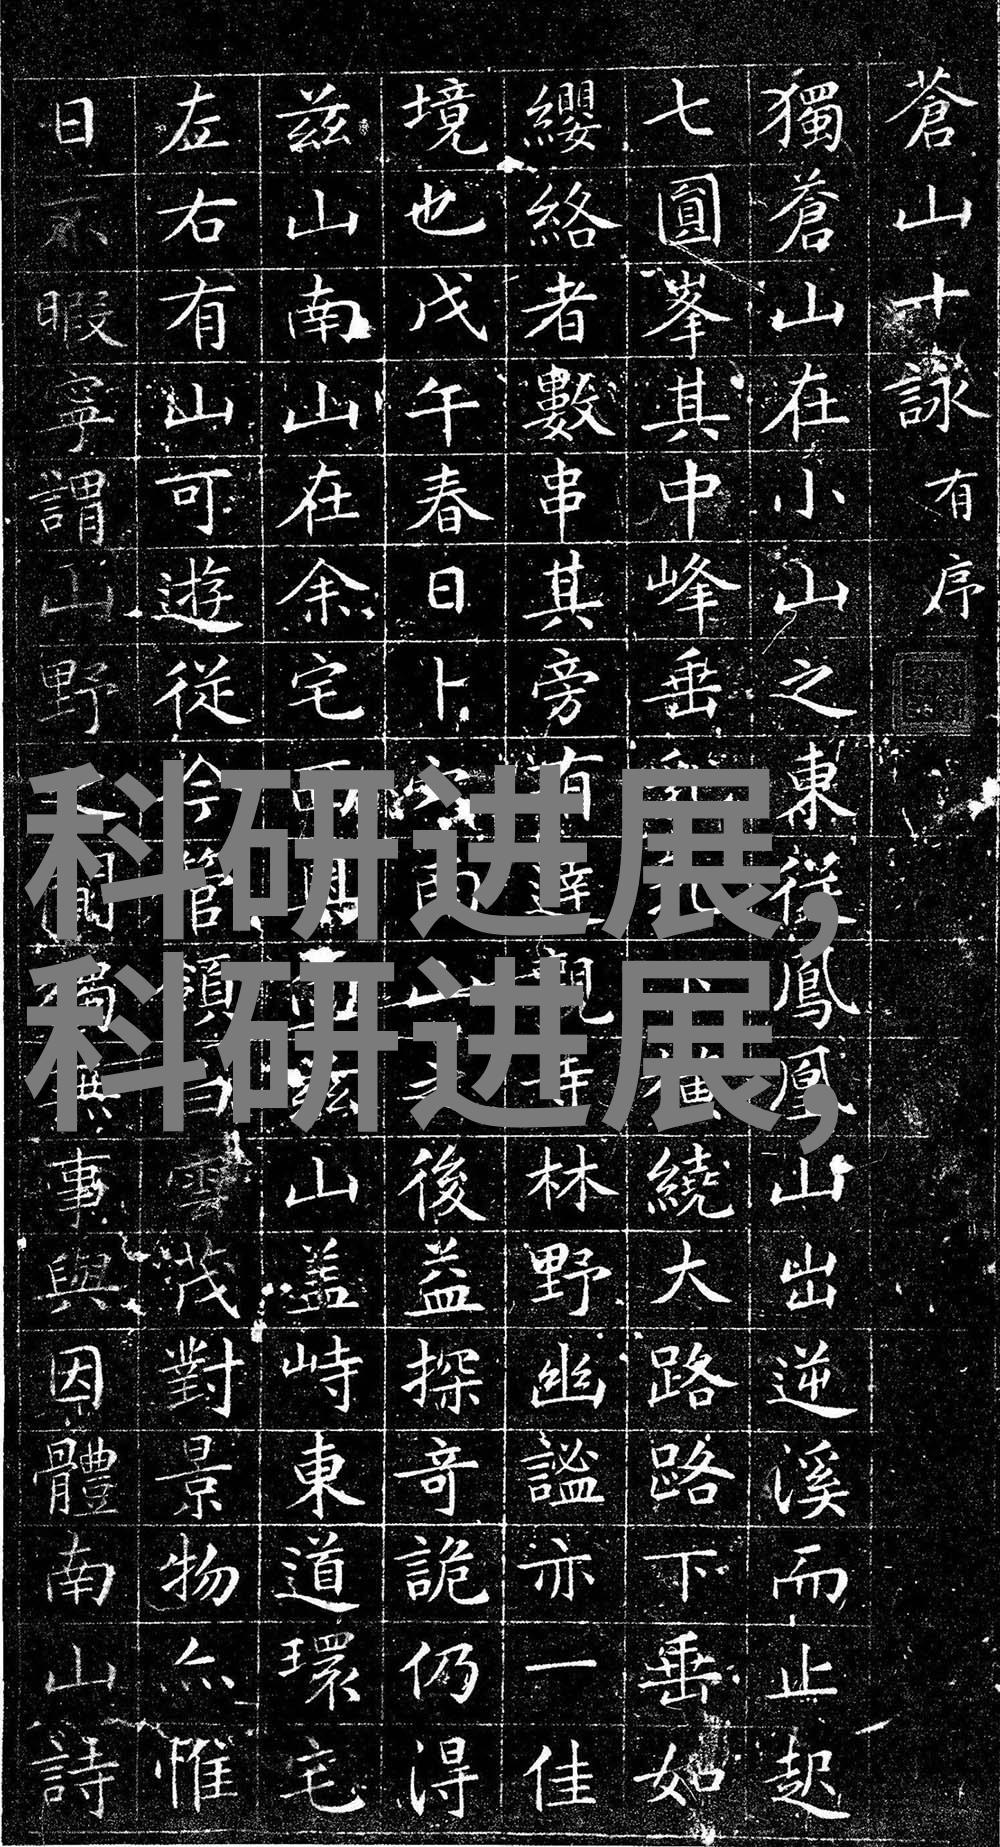 蒼山十詠 有序
獨蒼山在小山之東從鳳凰山出逆溪而止起
七圓峯其中峰垂繞大路路下垂如
纓絡者數串其旁有達觀寺林野幽謐亦一佳
境也戊午春日卜山之後益探奇詭仍得
茲山南山在余宅茲山蓋峙東道環宅
左右有山可遊從今管領白雲茂對景物亦惟
日不暇寧謂山野之間獨無事與因體南山詩
科研进展,
科研进展,